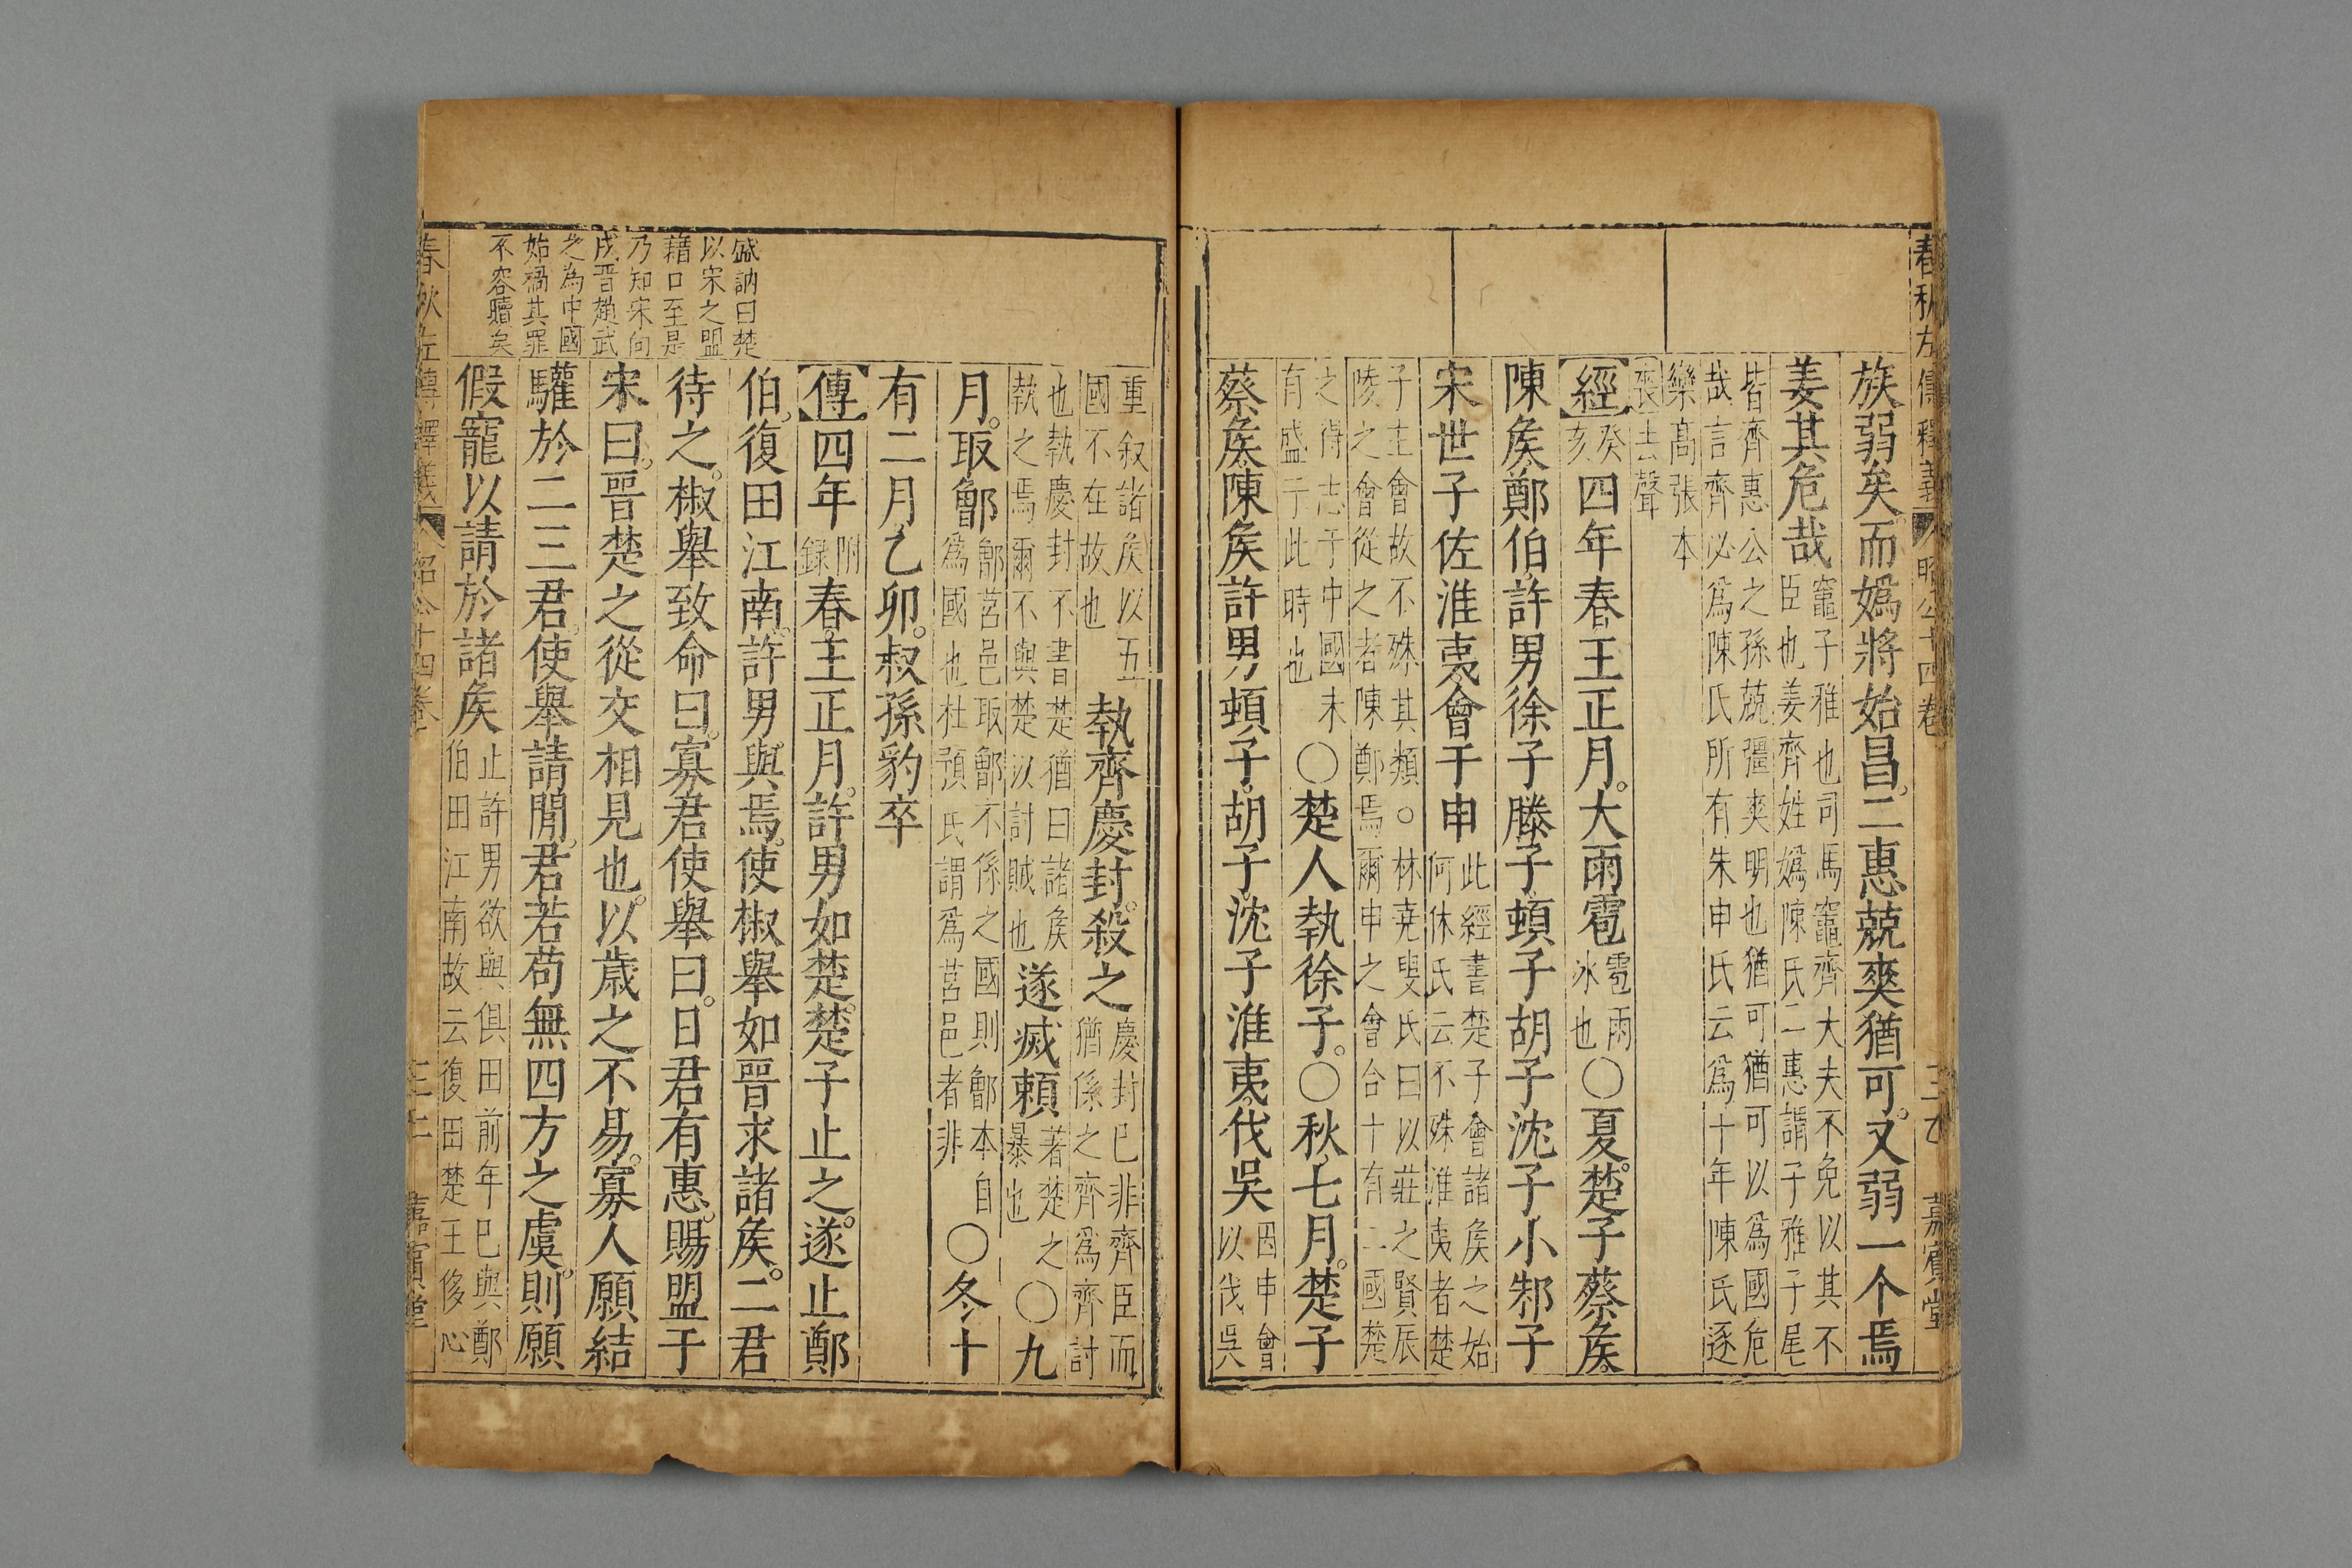 春秋左傳釋義 昭公十四卷 三七 嘉賓堂
族弱矣而嬀將始昌二惠競爽猶可又弱一个焉
姜其危哉竈子雅也司馬竈齊大夫不免以其不臣也姜齊姓嬀陳氏二惠謂子雅子尾
皆齊惠公之孫競彊爽明也猶可猶可以爲國危哉言齊必爲陳氏所有朱申氏云爲十年陳氏逐
欒高張本
喪去聲
經癸亥四年春王正月大雨雹雹雨冰也〇夏楚子蔡矦
陳矦鄭伯許男徐子滕子頓子胡子沈子小邾子
宋世子佐淮夷會于申此經書楚子會諸矦之始何休氏云不殊淮夷者楚
子主會故不殊其類。林堯叟氏曰以莊之賢辰陵之會從之者陳鄭焉爾申之會合十有二國楚
之得志于中國未有盛于此時也〇楚人執徐子〇秋七月楚子
蔡矦陳矦許男頓子胡子沈子淮夷伐吳因申會以伐吳
重叙諸矦以五國不在故也執齊慶封殺之慶封已非齊臣而猶係之齊爲齊討
也執慶封不書楚猶曰諸矦執之焉爾不與楚以討賊也遂滅賴著楚之暴也〇九
月取鄫鄫莒邑取鄫不係之國則鄫本自爲國也杜預氏謂爲莒邑者非〇冬十
有二月乙卯叔孫豹卒
傳四年附録春王正月許男如楚楚子止之遂止鄭
伯復田江南許男與焉使椒舉如晉求諸矦二君
待之椒舉致命曰寡君使舉曰日君有惠賜盟于
宋曰晉楚之從交相見也以歲之不易寡人願結
驩於二三君使舉請閒君若苟無四方之虞則願
假寵以請於諸矦止許男欲與俱田前年已與鄭伯田江南故云復田楚王侈心
盛訥曰楚
以宋之盟
藉口至是
乃知宋向
戌晉趙武
之為中國
始禍其罪
不容贖矣
春秋左傳釋義 昭公十四卷 嘉賓堂